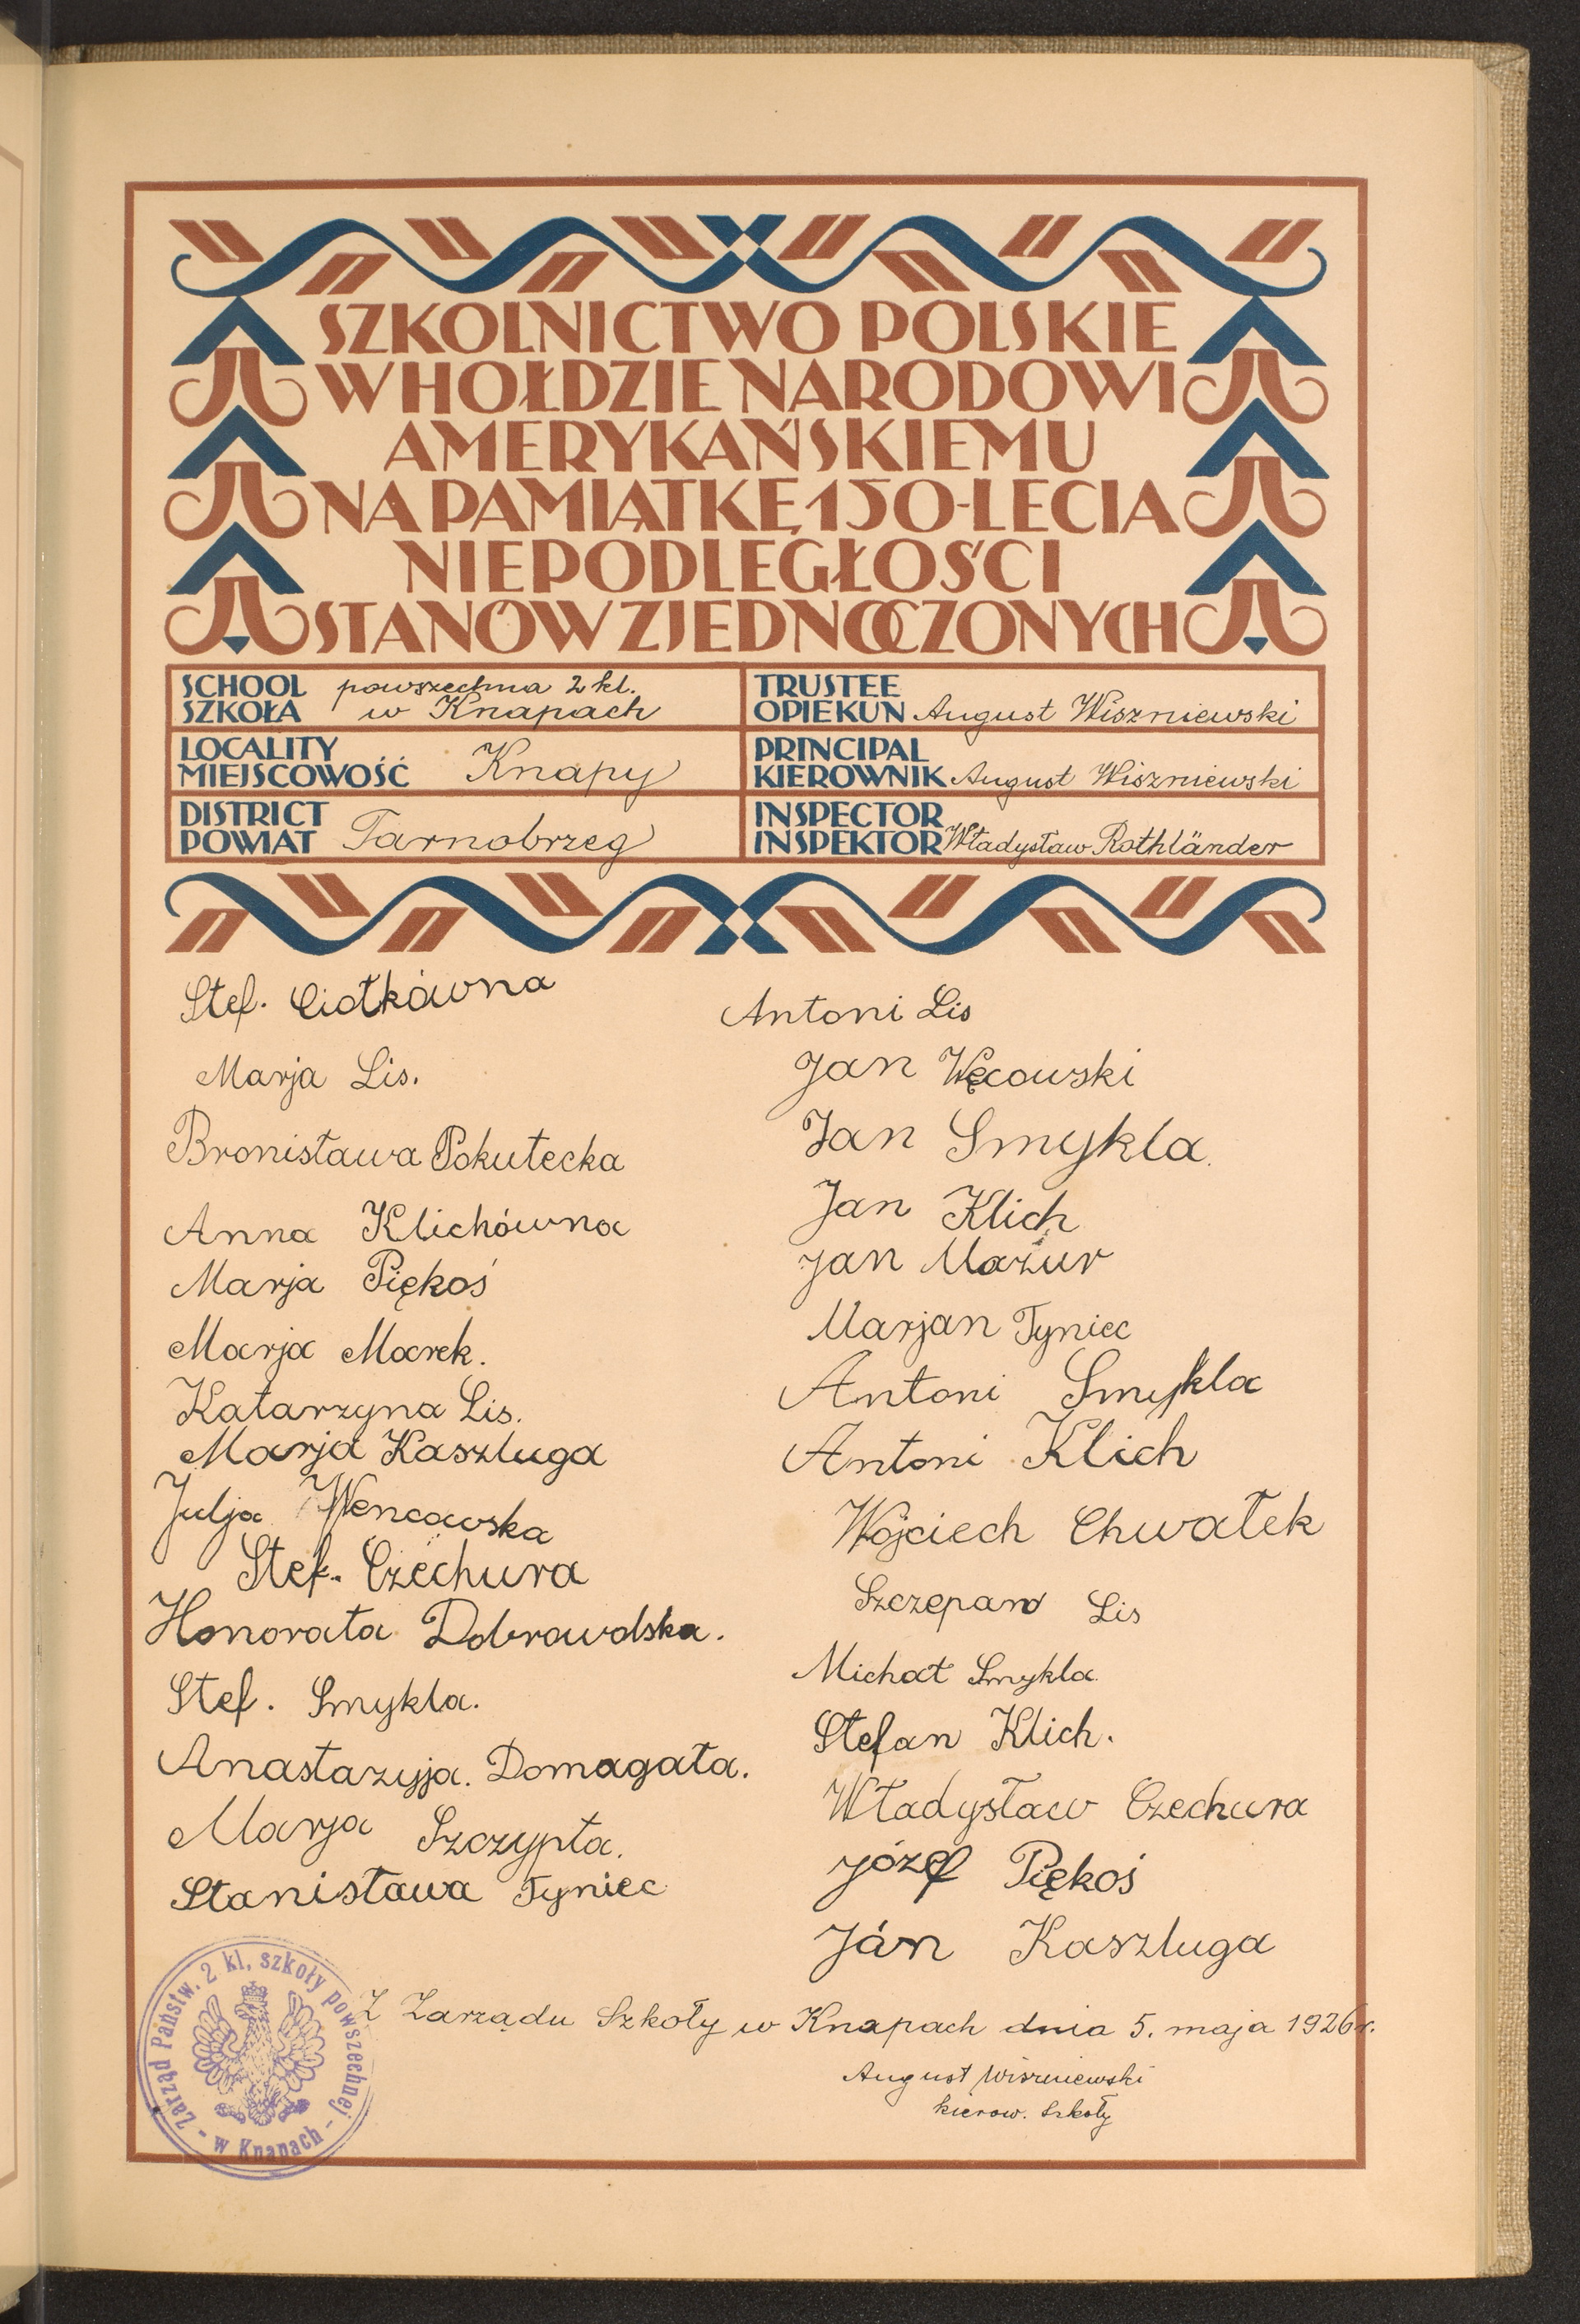 SZKOLNICTWO POLSKIE
W HOŁDZIE NARODOWI
AMERYKAŃSKIEMU
NA PAMIĄTKĘ 150-LECIA
NIEPODLEGŁOŚCI
STANÓW ZJEDNOCZONYCH
SCHOOL
SZKOŁA
powszechna 2 kl.
w Knapach
TRUSTEE
OPIEKUN August Wiszniewski
LOCALITY
MIEJSCOWOŚĆ Knapy
PRINCIPAL
KIEROWNIK August Wiszniewski
DISTRICT
POWIAT Tarnobrzeg
INSPECTOR
INSPEKTOR Władysław Rothländer
Stef. Ciołkówna
Marja Lis.
Bronisława Pokutecka
Anna Klichówna
Marja Piękoś
Marja Marek.
Katarzyna Lis.
Marja Kaszluga
Julja Wencowska
Stef. Czechura
Honorata Dobrowolska.
Stef. Smykla.
Anastazyja. Domagała.
Marja Szczypta.
Stanisława Tyniec
Antoni Lis
Jan Węcowski
Jan Smykla.
Jan Klich
Jan Mazur
Marjan Tyniec
Antoni Smykla
Antoni Klich
Wojciech Chwałek
Szczepan Lis
Michał Smykla.
Stefan Klich.
Władysław Czechura
Józef Piękoś
Ján Kaszluga
Z Zarządu Szkoły w Knapach dnia 5. maja 1926 r.
August Wiszniewski
kierow. szkoły
Zarząd Państw. 2 kl. szkoły powszechnej
- w Knapach -